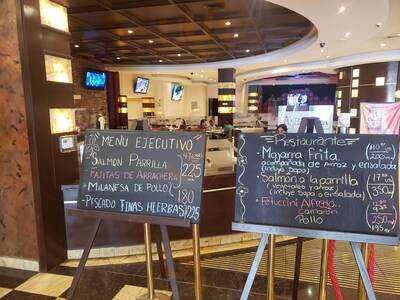 MENU EJECUTIVO
SALMON PARRILLA
FAJITAS DE ARRACHERA 225
MILANESA DE POLLO 180
PESCADO FINAS HIERBAS 225
Restaurante
Mojarra Frita
acompañada de Arroz y ensalada 200
(incluye sopa)
Salmón a la parrilla
(vegetales y arroz) 350
(incluye sopa o ensalada)
Fetuccini Alfredo
Camarón 250
Pollo 195